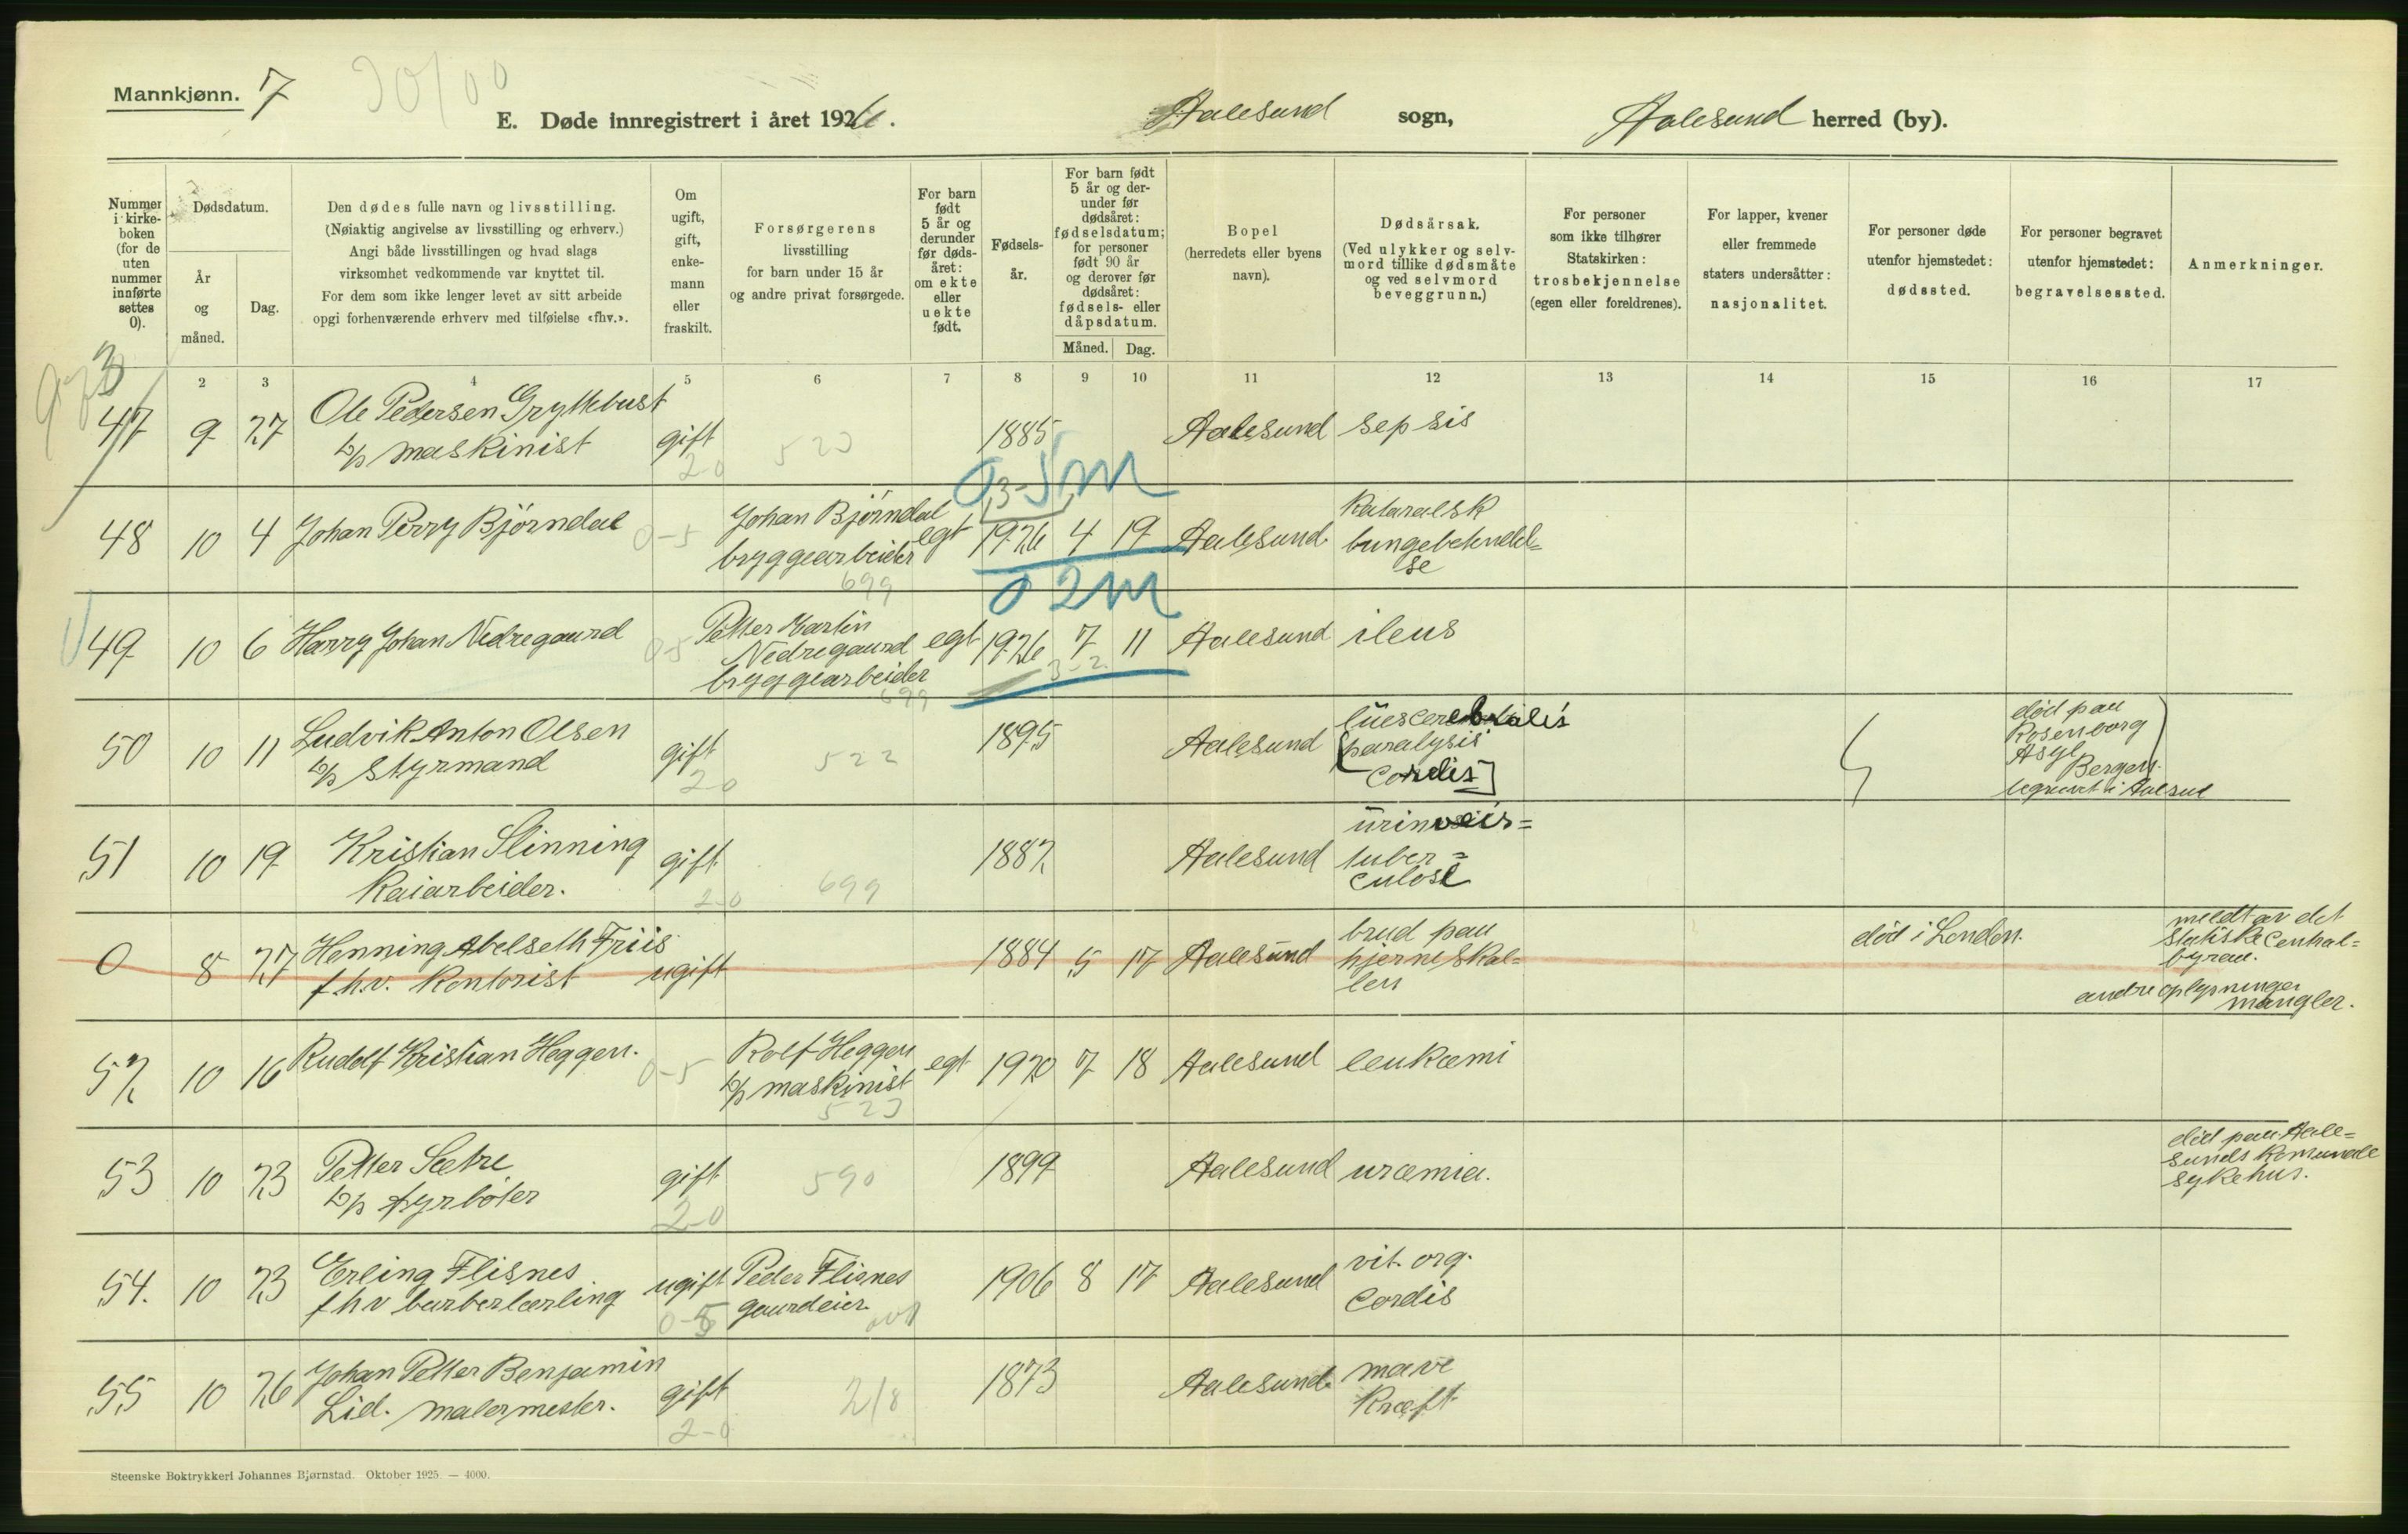 Mannkjønn. 7
E. Døde innregistrert i året 1926. Aalesund sogn, Aalesund herred (by).
Nummer i kirke-boken (for de uten nummer innførte settes 0).
Dødsdatum.
År og måned.
Dag.
Den dødes fulle navn og livsstilling.
(Nøiaktig angivelse av livsstilling og erhverv.)
Angi både livsstillingen og hvad slags
virksomhet vedkommende var knyttet til.
For dem som ikke lenger levet av sitt arbeide
opgi forhenværende erhverv med tilføielse «fhv.».
Om ugift, gift, enke-mann eller fraskilt.
Forsørgerens
livsstilling
for barn under 15 år
og andre privat forsørgede.
For barn født 5 år og derunder før døds-året: om ekte eller uekte født.
Fødsels-år.
For barn født 5 år og der-under før dødsåret: fødselsdatum; for personer født 90 år og derover før dødsåret: fødsels- eller dåpsdatum.
Måned. Dag.
Bopel
(herredets eller byens
navn).
Dødsårsak.
(Ved ulykker og selv-
mord tillike dødsmåte
og ved selvmord
beveggrunn.)
For personer
som ikke tilhører
Statskirken:
trosbekjennelse
(egen eller foreldrenes).
For lapper, kvener
eller fremmede
staters undersåtter:
nasjonalitet.
For personer døde
utenfor hjemstedet:
dødssted.
For personer begravet
utenfor hjemstedet:
begravelsessted.
Anmerkninger.
2 3 4 5 6 7 8 9 10 11 12 13 14 15 16 17
47 9 27 Ole Pedersen Gryttebust
d/s maskinist gift 2-0 523 1885 Aalesund sepsis
3-5 m
48 10 4 Johan Perry Bjørndal 0-5 Johan Bjørndal
bryggearbeider 699 egt 1926 4 19 Aalesund Kataralsk
lungebetendel=
se
0 2 m
49 10 6 Harry Johan Nedregaard 0-5 Petter Martin
Nedregaard
bryggearbeider 699 egt 1926 7 11 Aalesund ileus
3-2
50 10 11 Ludvik Anton Olsen
d/s styrmand gift 2-0 522 1895 Aalesund lues cerebralis
[paralysis
cordis]
død paa
Rosenborg
Asyl
Bergen.
begravet i Aalesund
51 10 19 Kristian Slinning
Kaiarbeider. gift 2-0 699 1882 Aalesund urinveis=
tuber=
culose
0 8 27 Henning Abelseth Friis
f.h.v. Kontorist ugift 1884 5 17 Aalesund brud paa
hjerneskal=
len
død i London.
meldt av det
Statiske Central=
byraa.
andre oplysninger
mangler.
52 10 16 Rudolf Kristian Heggen. 0-5 Rolf Heggen
d/s maskinist 523 egt 1920 7 18 Aalesund leukæmi
53 10 23 Petter Sætre
d/s fyrbøter gift 2-0 590 1899 Aalesund uræmia.
død paa Aale=
sunds Komunale
sykehus.
54. 10 23 Erling Flisnes
fhv barberlærling ugift 0-5 Peder Flisnes
gaardeier. 1906 8 17 Aalesund vit. org.
Cordis
55 10 26 Johan Petter Benjamin
Lid. malermester. gift 2-0 218 1873 Aalesund mave
Kræft
Steenske Boktrykkeri Johannes Bjørnstad. Oktober 1925. — 4000.